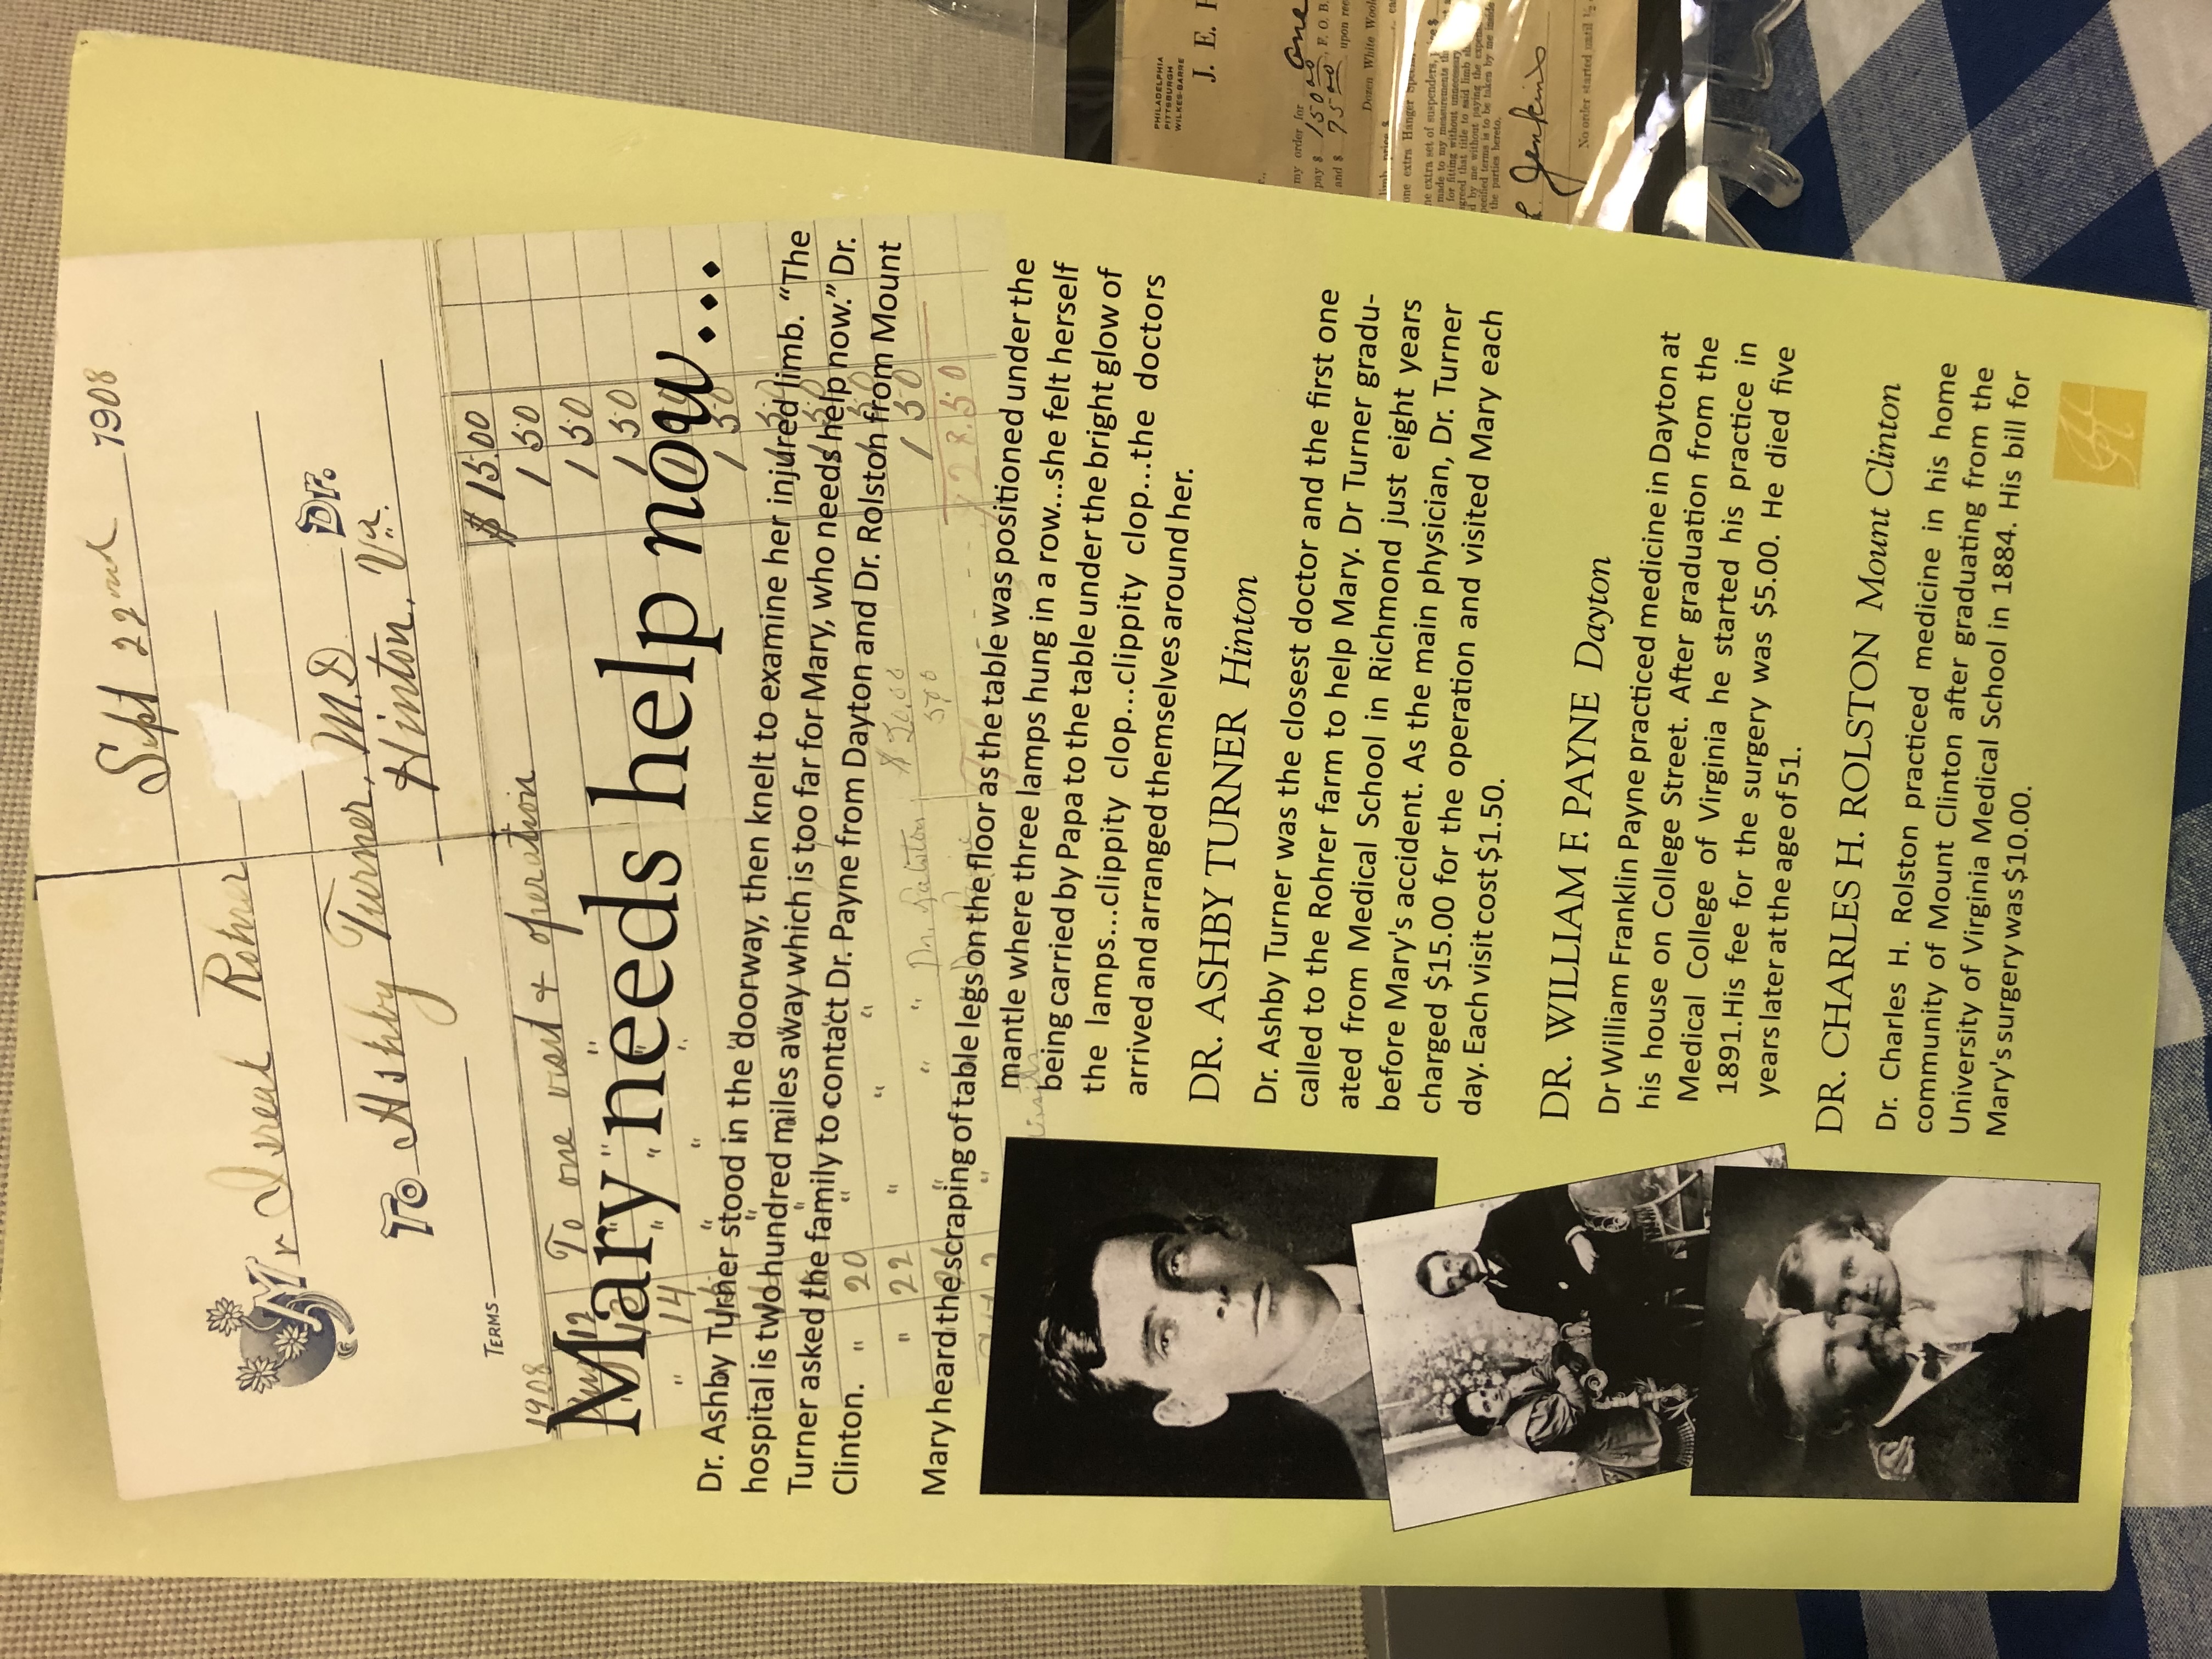 Sept 22nd 1908
Mr Isreal Rohrer
To Ashby Turner, M.D. Dr.
Hinton, Va.
TERMS
1908
12 To one visit & operation $ 15.00
1 50
1 50
" 14 " " " 1 50
1 50
" 20 " " "
" 22 " " " 1 50
$ 28.50
Mary needs help now...
Dr. Ashby Turner stood in the doorway, then knelt to examine her injured limb. “The
hospital is two hundred miles away which is too far for Mary, who needs help now.” Dr.
Turner asked the family to contact Dr. Payne from Dayton and Dr. Rolston from Mount
Clinton.
Mary heard the scraping of table legs on the floor as the table was positioned under the
mantle where three lamps hung in a row...she felt herself
being carried by Papa to the table under the bright glow of
the lamps...clippity clop...clippity clop...the doctors
arrived and arranged themselves around her.
DR. ASHBY TURNER Hinton
Dr. Ashby Turner was the closest doctor and the first one
called to the Rohrer farm to help Mary. Dr Turner gradu-
ated from Medical School in Richmond just eight years
before Mary's accident. As the main physician, Dr. Turner
charged $15.00 for the operation and visited Mary each
day. Each visit cost $1.50.
DR. WILLIAM F. PAYNE Dayton
Dr William Franklin Payne practiced medicine in Dayton at
his house on College Street. After graduation from the
Medical College of Virginia he started his practice in
1891.His fee for the surgery was $5.00. He died five
years later at the age of 51.
DR. CHARLES H. ROLSTON Mount Clinton
Dr. Charles H. Rolston practiced medicine in his home
community of Mount Clinton after graduating from the
University of Virginia Medical School in 1884. His bill for
Mary's surgery was $10.00.
PHILADELPHIA
PITTSBURGH
WILKES-BARRE
J. E.
my order for one
pay $ 150 00
and $ 75 00, F. O. B.
upon
Dozen White Wool
one extra Hanger
extra set of suspenders,
made to my measurements
for fitting without unnecessary
agreed that title to said limb
by me without paying the
specified terms is to be taken by me
the parties hereto.
Jenkins
No order started until ½